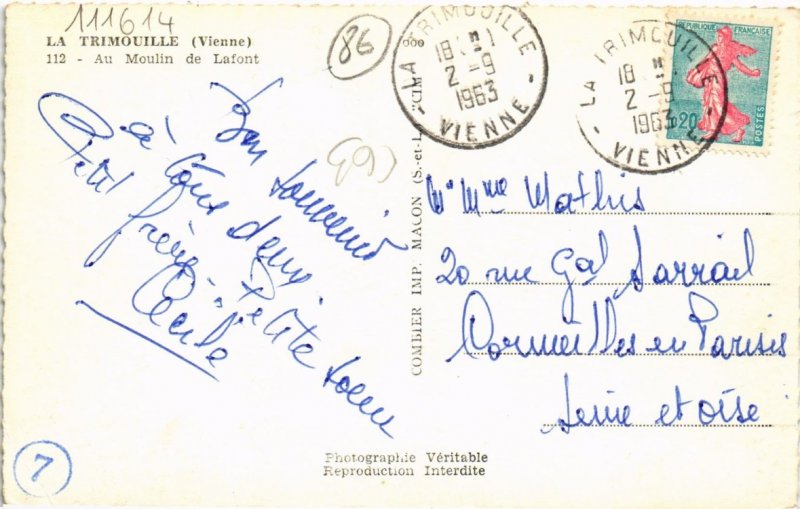 111614
LA TRIMOUILLE (Vienne)
112 - Au Moulin de Lafont
86
Bon souvenir
à tous deux
Petit frère & Petite soeur
Cécile
7
COMBIER IMP. MACON (S.-et-L.) CIM
LA TRIMOUILLE
2 - 9
1963
VIENNE
LA TRIMOUILLE
1963
VIENNE
REPUBLIQUE FRANÇAISE
0,20
POSTES
Mr Mme Mathis
20 rue Gal Sarrail
Cormeilles en Parisis
Seine et Oise
Photographie Véritable
Reproduction Interdite